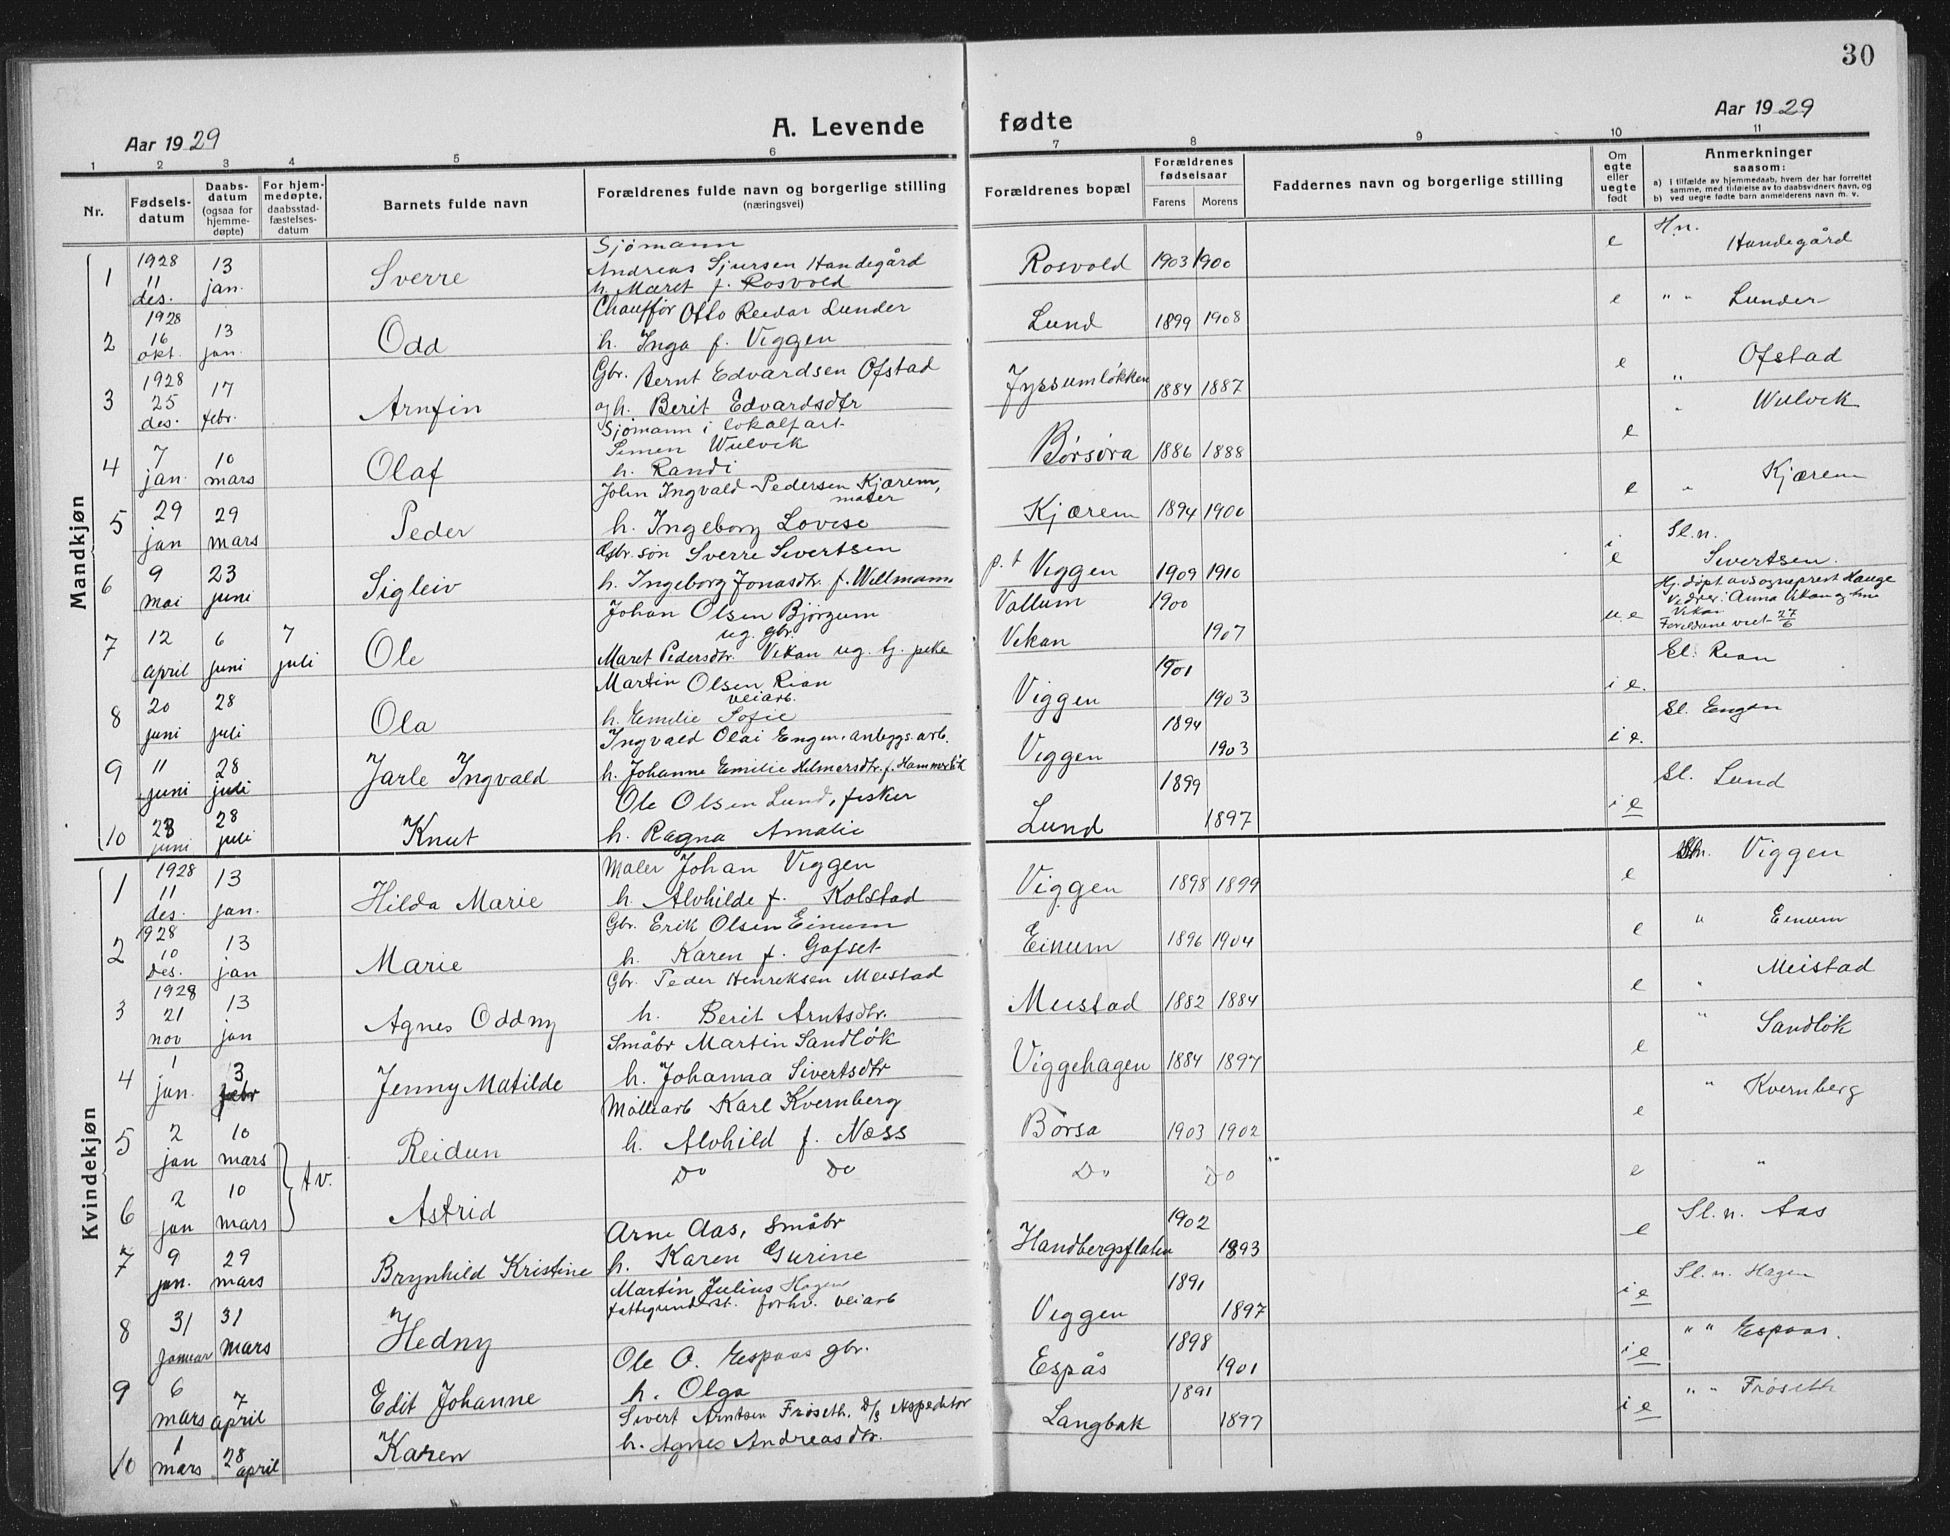 30
Aar 1929
A. Levende fødte
Aar 1929
1 2 3 4 5 6 7 8 9 10 11
Nr.
Fødsels-
datum
Daabs-
datum
(ogsaa for
hjemme-
døpte)
For hjem-
medøpte,
daabsstad-
fæstelses-
datum
Barnets fulde navn
Forældrenes fulde navn og borgerlige stilling
(næringsvei)
Forældrenes bopæl
Forældrenes
fødselsaar
Farens Morens
Faddernes navn og borgerlige stilling
Om
egte
eller
uegte
født
Anmerkninger
saasom:
a) i tilfælde av hjemmedaab, hvem der har forrettet
samme, med tilføielse av to daabsvidners navn, og
b) ved uegte fødte barn anmelderens navn m. v.
Mandkjøn
1 1928 11 des. 13 jan. Sverre
Sjømann
Andreas Sjursen Handegård
h. Maret f. Rosvold
Rosvold 1903 1900 e H.n. Handegård
2 1928 16 okt. 13 jan. Odd
Chauffør Otto Reidar Lunder
h. Inga f. Viggen
Lund 1899 1908 e " " Lunder
3 1928 25 des. 17 febr. Arnfin
Gbr. Bernt Edvardsen Ofstad
og h. Berit Edvardsdtr
Jyssumløkken 1884 1887 e " Ofstad
4 7 jan. 10 mars Olaf
Sjømann i lokalfart
Simen Wulvik
h. Randi
Børsøra 1886 1888 e " Wulvik
5 29 jan 29 mars Peder
John Ingvald Pedersen Kjærem,
mater
h. Ingeborg Lovise
Kjærem 1894 1900 e " Kjærem
6 9 mai 23 juni Sigleiv
Gbr. søn Sverre Sivertsen
h. Ingeborg Jonasdtr. f. Willmann
p.t Viggen 1909 1910 i e Sl.n. Sivertsen.
7 12 april 6 juni 7 juli Ole
Johan Olsen Bjørgum
ug. gbr.
Maret Pedersdtr. Vikan ug. tj. pike
Vollum 1900
Vikan 1907
u e
Hj. døpt av sogneprest Hauge
Vidner: Anna Vikan og
Vikan
Foreldrene viet 27/6
8 20 juni 28 juli Ola
Martin Olsen Rian
veiarb.
h. Emilie Sofie
Viggen 1901 1903 i e. Sl. Rian
9 11 juni 28 juli Jarle Ingvald
Ingvald Olai Engen, anleggs.arb.
h. Johanne Emilie Hilmersdtr. f. Hammerlök
Viggen 1894 1903 i e. Sl. Engen
10 23 juni 28 juli Knut
Ole Olsen Lund, fisker
h. Ragna Amalie
Lund 1899 1897 i e Sl. Lund
Kvindekjøn
1 1928 11 des. 13 jan. Hilda Marie
Maler Johan Viggen
h. Alvhilde f. Kolstad
Viggen 1898 1899 e Viggen
2 1928 10 des. 13 jan Marie
Gbr. Erik Olsen Einum
h. Karen f. Gafset
Einum 1896 1904 e " Einum
3 1928 21 nov 13 jan Agnes Oddny
Gbr. Peder Henriksen Meistad
h. Berit Arntsdtr.
Meistad 1882 1884 e " Meistad
4 1 jan. 3 febr Jenny Matilde
Småbr Martin Sandløk
h. Johanna Sivertsdtr
Viggehagen 1884 1897 e " Sandløk
5 2 jan 10 mars Tv. Reidun
Mölliarb Karl Kvernberg
h. Alvhild f. Næss
Børsa 1903 1902 e " Kvernberg
6 2 jan 10 mars Astrid
Do Do
Do Do " e "
7 9 jan. 29 mars Brynhild Kristine
Arne Aas, småbr
h. Karen Gurine
Handbergsflaten 1902 1893 e Sl.n. Aas
8 31 januar 31 mars Hedny
Martin Julius Hagen
fattigunderst. forhv. veiarb
Viggen 1891 1897 i e Sl.n. Hagen
9 6 mars 7 april Edit Johanne
Ole O. Espaas gbr.
h. Olga
Espås 1898 1901 i e " " Espaas.
10 1 mars 28 april Karen
Sivert Arntsen Frøseth. D/S expeditør
h. Agnes Andreasdtr.
Langbak 1891 1897 i e " " Frøseth